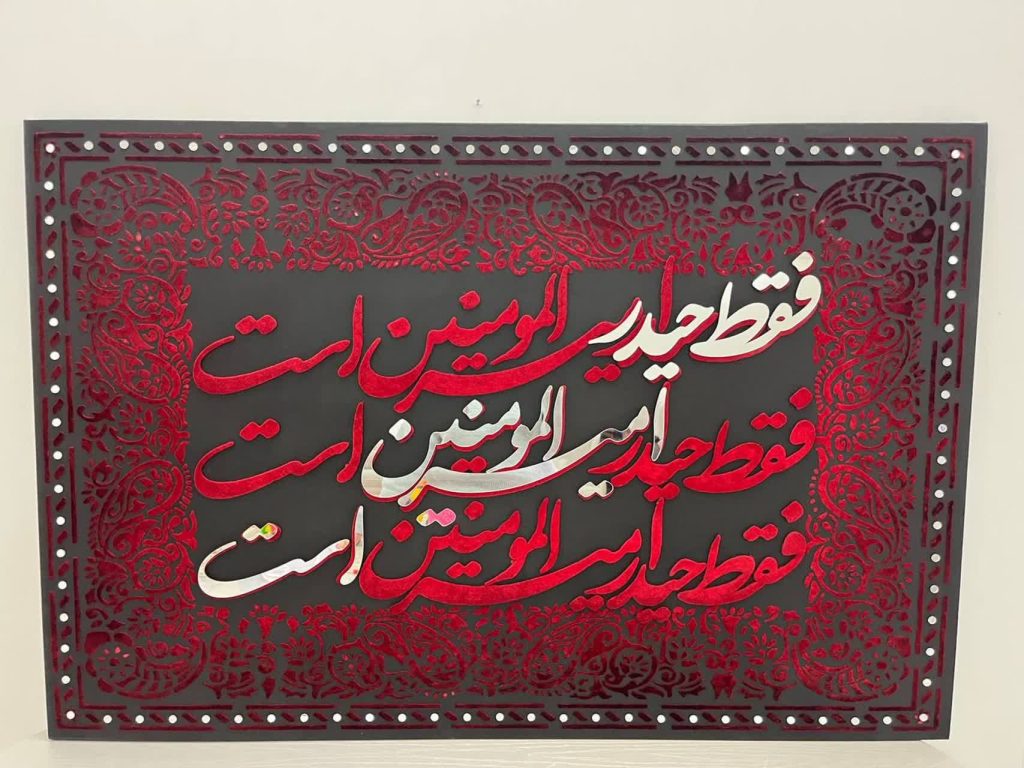 فقط حیدر امیر المومنین است
فقط حیدر امیر المومنین است
فقط حیدر امیر المومنین است